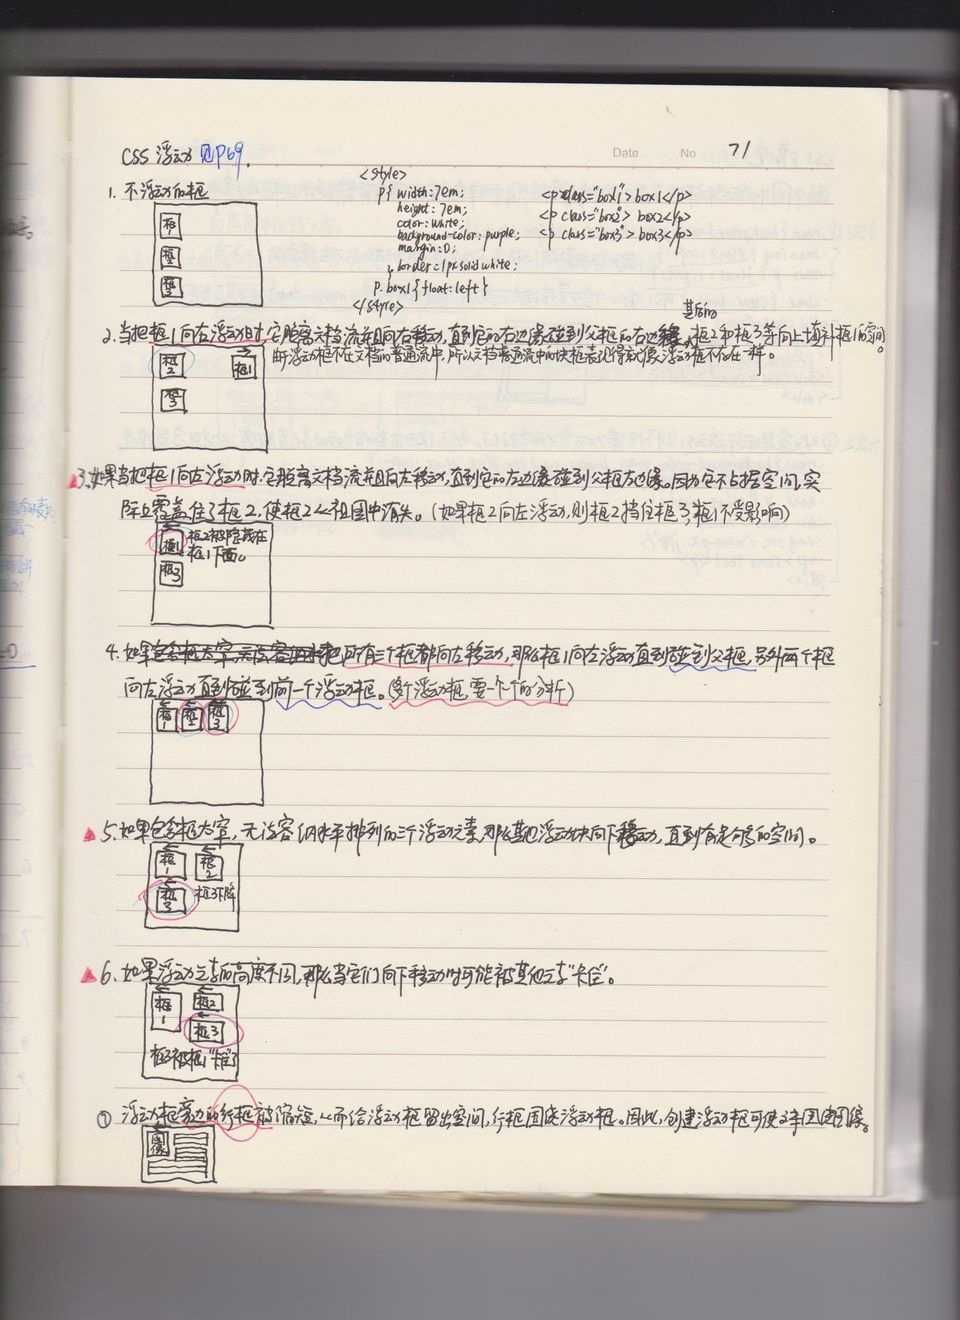 Date No 71
CSS 浮动 见P69.
1. 不浮动的框
框1
框2
框3
<style>
p{ width:7em;
height:7em;
color:white;
background-color:purple;
margin:0;
border=1px solid white;
}
p.box1{float:left}
</style>
<p class="box1">box1</p>
<p class="box2">box2</p>
<p class="box3">box3</p>
其后的
2.当把框1向右浮动时,它脱离文档流并且向右移动,直到它的右边缘碰到父框的右边缘,框2和框3等向上填补框1的空间。
浮动框不在文档的普通流中,所以文档普通流中的块框表现得就像浮动框不存在一样。
框2
框1
框3
3.如果当把框1向左浮动时,它脱离文档流并且向左移动,直到它的左边缘碰到父框左边缘。因为它不占据空间,实
际上覆盖住了框2,使框2从视图中消失。(如果框2向左浮动,则框2挡住框3,框1不受影响)
框1
框2被隐藏在
框1下面。
框3
4.如果把所有三个框都向左移动,那么框1向左浮动直到碰到父框,另外两个框
向左浮动直到碰到前一个浮动框。(多个浮动框要一个个的分析)
框1
框2
框3
5.如果包含框太窄,无法容纳水平排列的三个浮动元素,那么其他浮动块向下移动,直到有足够的空间。
框1
框2
框3
框3下降
6.如果浮动元素的高度不同,那么当它们向下移动时可能被其他元素"卡住"。
框1
框2
框3
框3被框1"卡住"了
⑦ 浮动框旁边的行框被缩短,从而给浮动框留出空间,行框围绕浮动框。因此,创建浮动框可使文本围绕图像。
图像